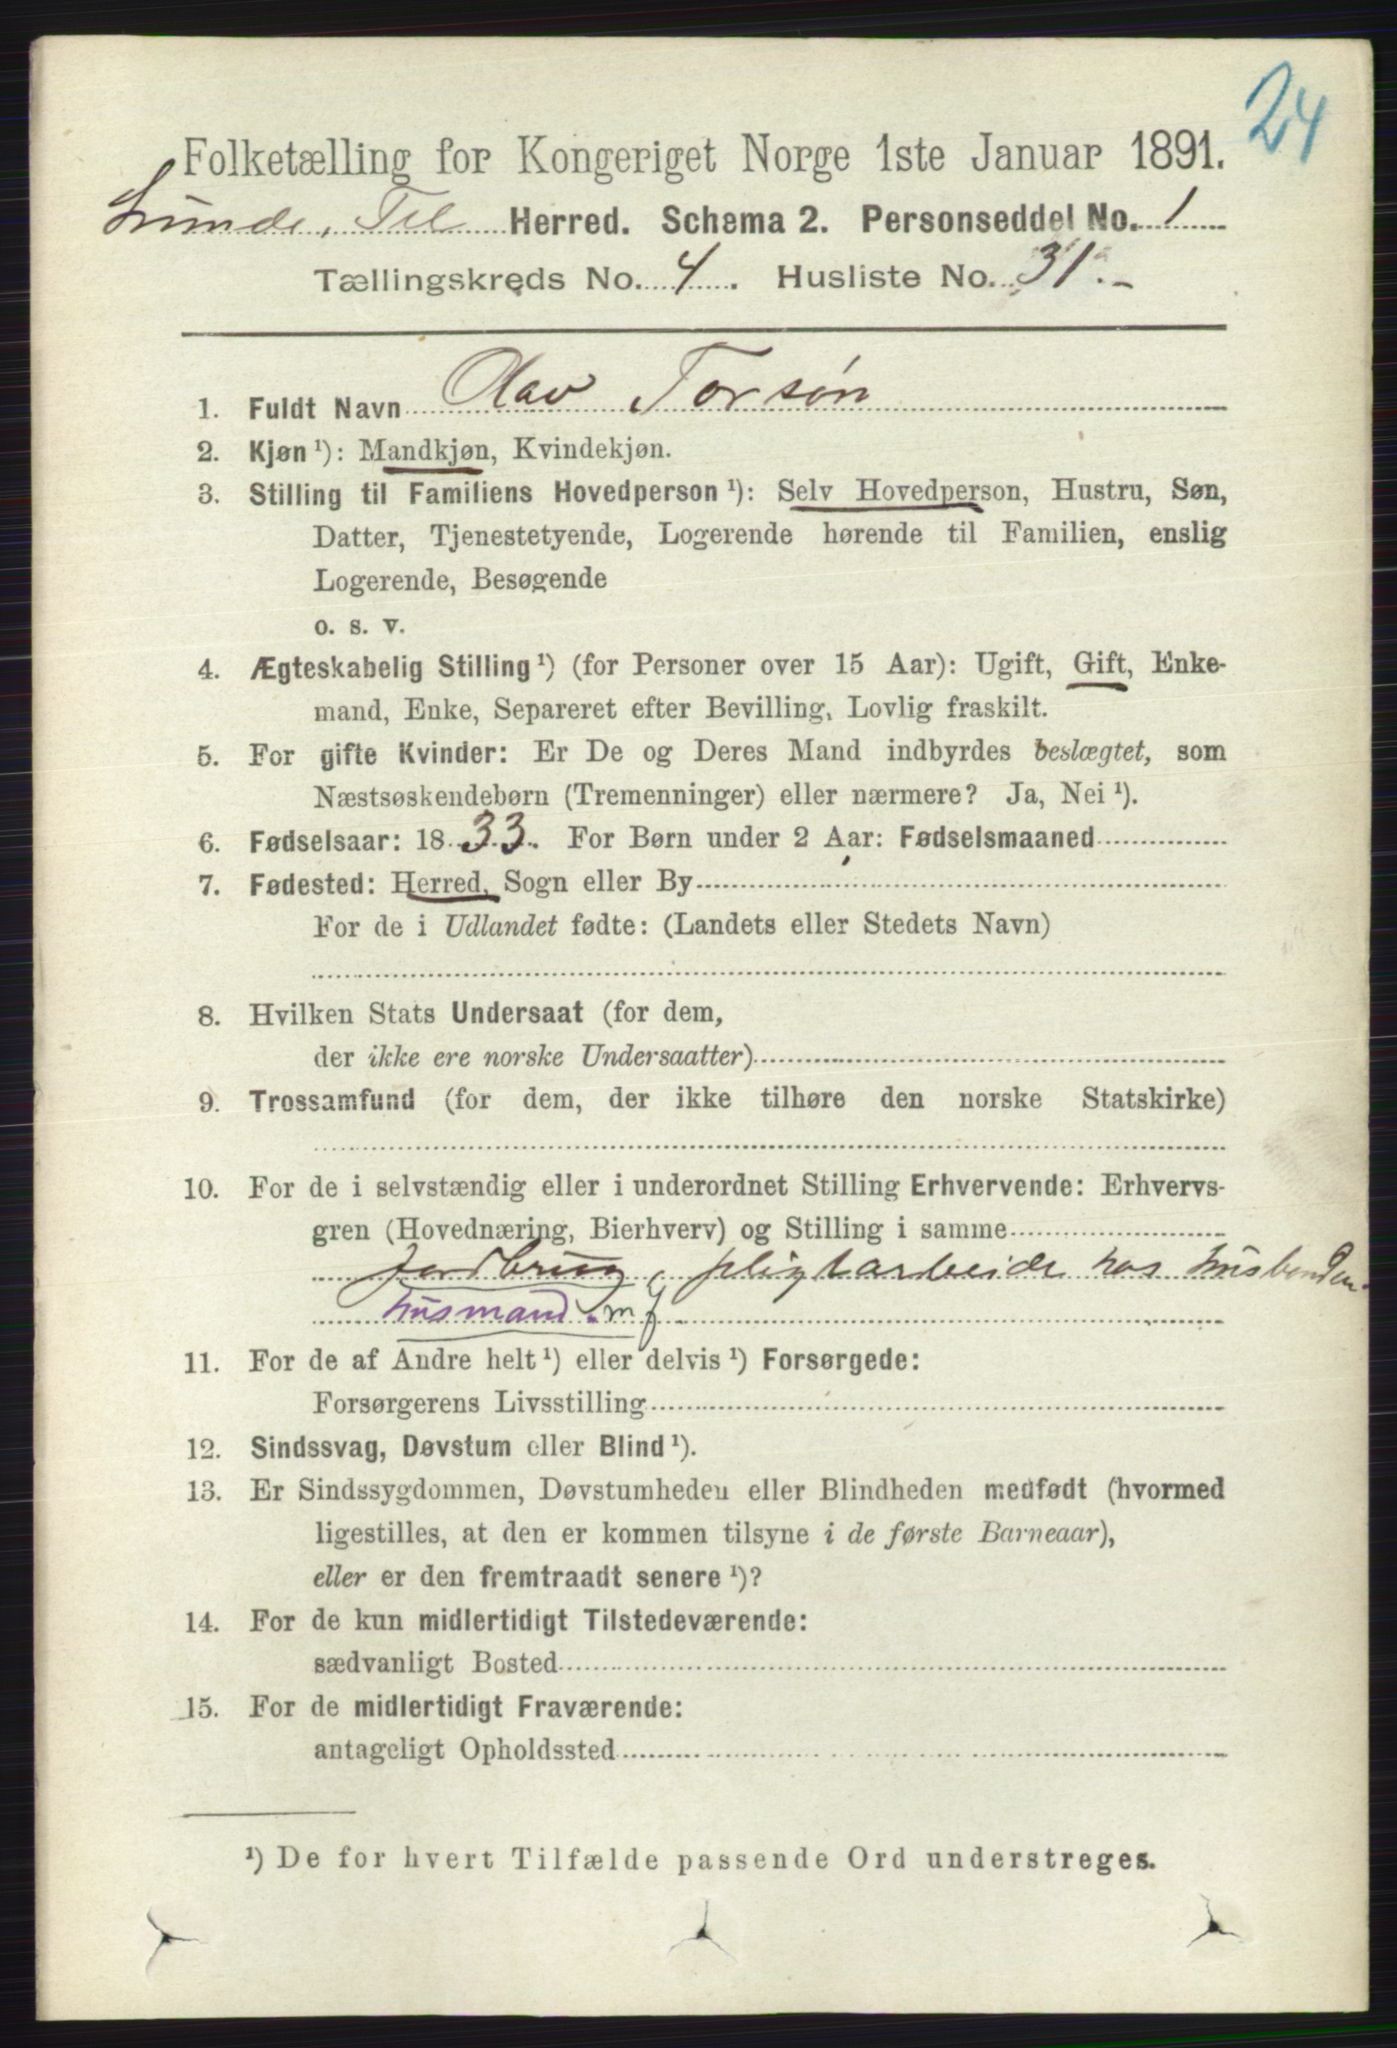 24
Folketælling for Kongeriget Norge 1ste Januar 1891.
Lunde, Tel Herred. Schema 2. Personseddel No. 1
Tællingskreds No. 4. Husliste No. 31.-
1. Fuldt Navn Olav Torsøn
2. Kjøn ¹): Mandkjøn, Kvindekjøn.
3. Stilling til Familiens Hovedperson ¹): Selv Hovedperson, Hustru, Søn,
Datter, Tjenestetyende, Logerende hørende til Familien, enslig
Logerende, Besøgende
o. s. v.
4. Ægteskabelig Stilling ¹) (for Personer over 15 Aar): Ugift, Gift, Enke-
mand, Enke, Separeret efter Bevilling, Lovlig fraskilt.
5. For gifte Kvinder: Er De og Deres Mand indbyrdes beslægtet, som
Næstsøskendebørn (Tremenninger) eller nærmere? Ja, Nei ¹).
6. Fødselsaar: 1833. For Børn under 2 Aar: Fødselsmaaned
7. Fødested: Herred, Sogn eller By
For de i Udlandet fødte: (Landets eller Stedets Navn)
8. Hvilken Stats Undersaat (for dem,
der ikke ere norske Undersaatter)
9. Trossamfund (for dem, der ikke tilhøre den norske Statskirke)
10. For de i selvstændig eller i underordnet Stilling Erhvervende: Erhvervs-
gren (Hovednæring, Bierhverv) og Stilling i samme
jordbrug, pligtarbeide hos husbonden.
husmand. m j
11. For de af Andre helt ¹) eller delvis ¹) Forsørgede:
Forsørgerens Livsstilling
12. Sindssvag, Døvstum eller Blind ¹).
13. Er Sindssygdommen, Døvstumheden eller Blindheden medfødt (hvormed
ligestilles, at den er kommen tilsyne i de første Barneaar),
eller er den fremtraadt senere ¹)?
14. For de kun midlertidigt Tilstedeværende:
sædvanligt Bosted
15. For de midlertidigt Fraværende:
antageligt Opholdssted
¹) De for hvert Tilfælde passende Ord understreges.